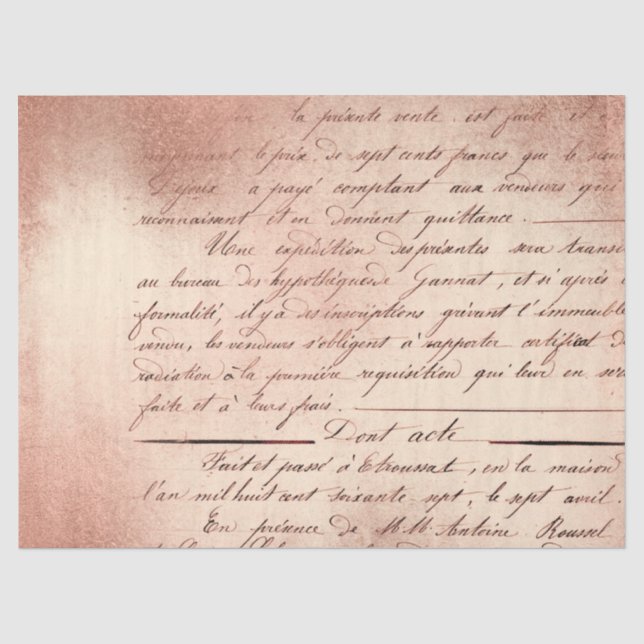 la présente vente est faite et
moyennant le prix de sept cents francs que le sieur
Dejoux a payé comptant aux vendeurs qui
reconnaissent et en donnent quittance.
Une expédition des présentes sera transc
au bureau des hypothèques de Gannat, et si après c
formalité, il y a des inscriptions grévant l'immeuble
vendu, les vendeurs s'obligent à rapporter certificat d
radiation à la première requisition qui leur en s
faite et à leurs frais.
Dont acte
Fait et passé à Etroussat, en la maison
l'an mil huit cent soixante-sept, le sept avril.
En présence de M.M. Antoine Roussel